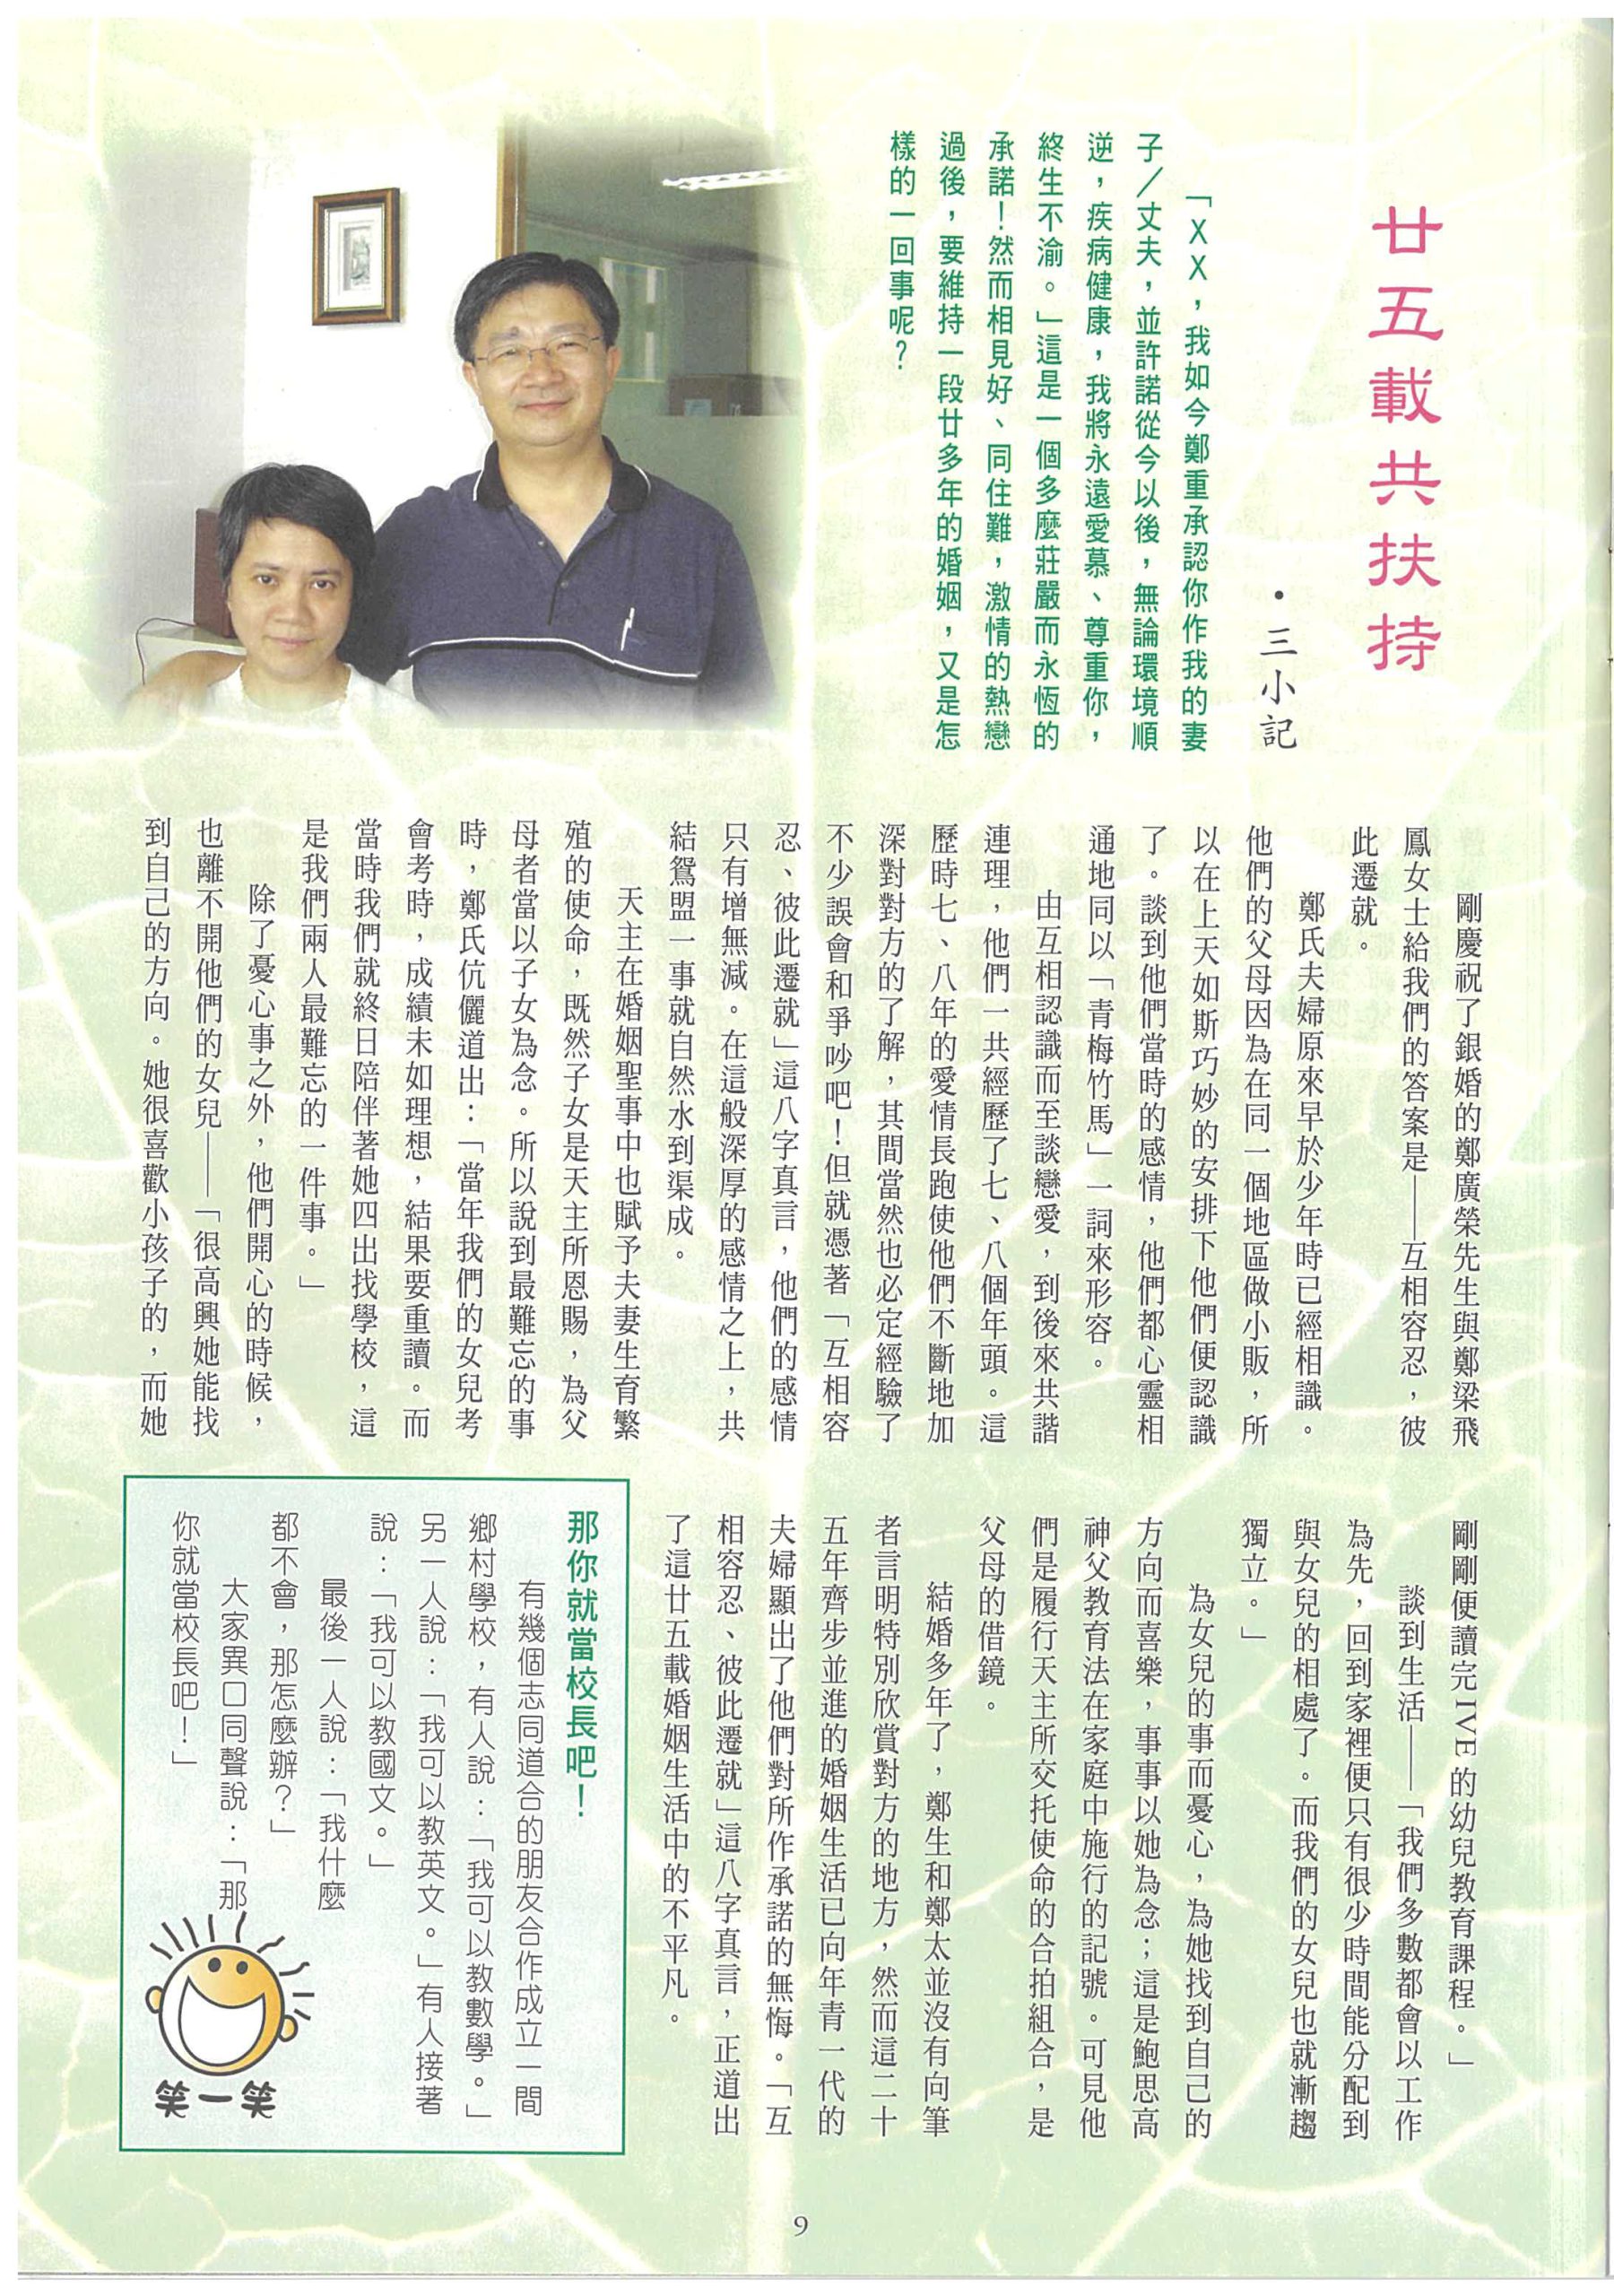 廿五載共扶持
・三小記
「ＸＸ，我如今鄭重承認你作我的妻
子／丈夫，並許諾從今以後，無論環境順
逆，疾病健康，我將永遠愛慕、尊重你，
終生不渝。」這是一個多麼莊嚴而永恆的
承諾！然而相見好、同住難，激情的熱戀
過後，要維持一段廿多年的婚姻，又是怎
樣的一回事呢？
剛慶祝了銀婚的鄭廣榮先生與鄭梁飛
鳳女士給我們的答案是——互相容忍，彼
此遷就。
鄭氏夫婦原來早於少年時已經相識。
他們的父母因為在同一個地區做小販，所
以在上天如斯巧妙的安排下他們便認識
了。談到他們當時的感情，他們都心靈相
通地同以「青梅竹馬」一詞來形容。
由互相認識而至談戀愛，到後來共諧
連理，他們一共經歷了七、八個年頭。這
歷時七、八年的愛情長跑使他們不斷地加
深對對方的了解，其間當然也必定經驗了
不少誤會和爭吵吧！但就憑著「互相容
忍、彼此遷就」這八字真言，他們的感情
只有增無減。在這般深厚的感情之上，共
結鴛盟一事就自然水到渠成。
天主在婚姻聖事中也賦予夫妻生育繁
殖的使命，既然子女是天主所恩賜，為父
母者當以子女為念。所以說到最難忘的事
時，鄭氏伉儷道出：「當年我們的女兒考
會考時，成績未如理想，結果要重讀。而
當時我們就終日陪伴著她四出找學校，這
是我們兩人最難忘的一件事。」
除了憂心事之外，他們開心的時候，
也離不開他們的女兒——「很高興她能找
到自己的方向。她很喜歡小孩子的，而她
剛剛便讀完IVE的幼兒教育課程。」
談到生活——「我們多數都會以工作
為先，回到家裡便只有很少時間能分配到
與女兒的相處了。而我們的女兒也就漸趨
獨立。」
為女兒的事而憂心，為她找到自己的
方向而喜樂，事事以她為念；這是鮑思高
神父教育法在家庭中施行的記號。可見他
們是履行天主所交托使命的合拍組合，是
父母的借鏡。
結婚多年了，鄭生和鄭太並沒有向筆
者言明特別欣賞對方的地方，然而這二十
五年齊步並進的婚姻生活已向年青一代的
夫婦顯出了他們對所作承諾的無悔。「互
相容忍、彼此遷就」這八字真言，正道出
了這廿五載婚姻生活中的不平凡。
那你就當校長吧！
有幾個志同道合的朋友合作成立一間
鄉村學校，有人說：「我可以教數學。」
另一人說：「我可以教英文。」有人接著
說：「我可以教國文。」
最後一人說：「我什麼
都不會，那怎麼辦？」
大家異口同聲說：「那
你就當校長吧！」
笑一笑
9